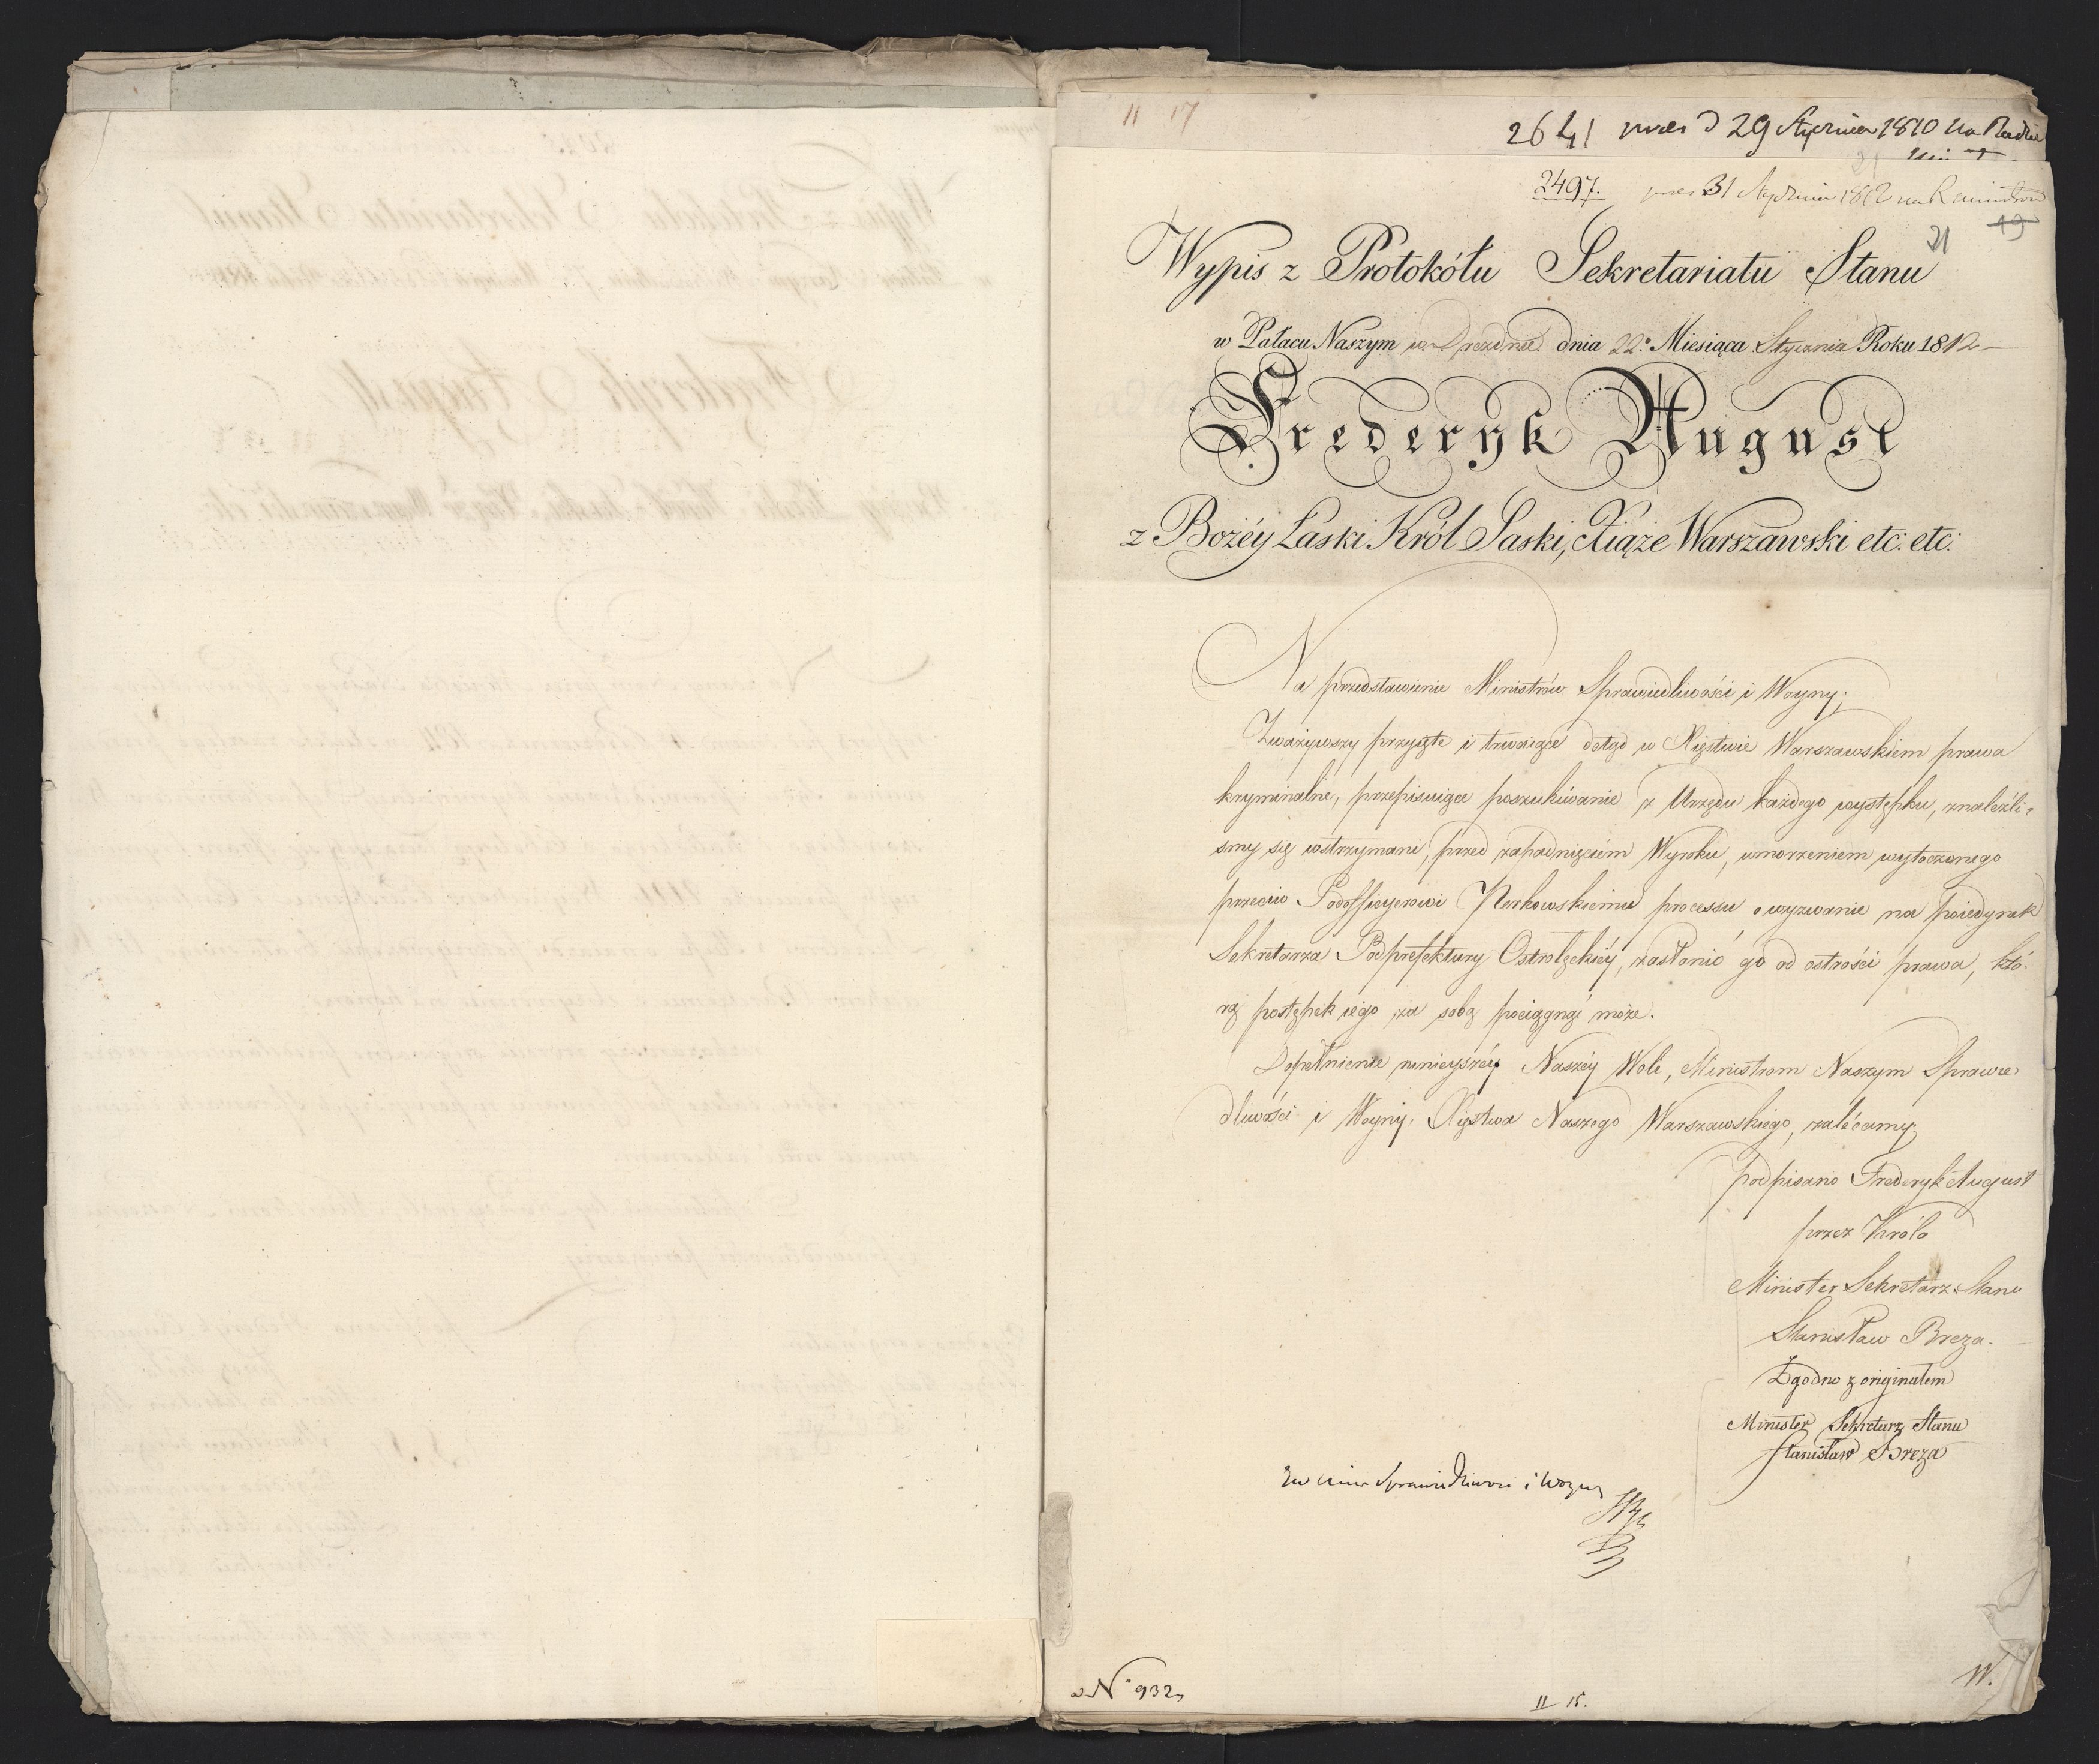 11 17
2641 prees d 29 Stycznia 1810 na Radzie
21
2497. prees 31 Stycznia 1812 na R Ministrow
21 19
Wypis z Protokółu Sekretariatu Stanu
w Pałacu Naszym w Dreznie dnia 22º Miesiąca Stycznia Roku 1812
Frederyk August
z Bożéy Łaski Król Saski, Xiąże Warszawski etc: etc:
Na przedstawienie Ministrów Sprawiedliwości i Woyny;
Zważywszy przyięte i trwaiące dotąd w Xięstwie Warszawskiem prawa
kryminalne, przepisuiące poszukiwanie z Urzędu każdego występku, znaleźli-
smy się wstrzymani, przed zapadnięciem Wyroku, umorzeniem wytoczonego
przeciw Podofficyerowi Nerkowskiemu processu o wyzwanie na poiedynek
Sekretarza Podprefektury Ostrołęckiéy, zasłonić go od ostrości prawa, któ-
rą postępek iego za sobą pociągnąć może.
Dopełnienie ninieyszéy Naszéy Woli, Ministrom Naszym Sprawie-
dliwości i Woyny, Xięstwa Naszego Warszawskiego, zalécamy.
podpisano Frederyk August
przez Króla
Minister Sekretarz Stanu
Stanisław Breza.
Zgodno z originałem
Minister Sekretarz Stanu
Stanisław Breza
Sprawiedliwosci i Woyny
N° 932
II 15.
W.